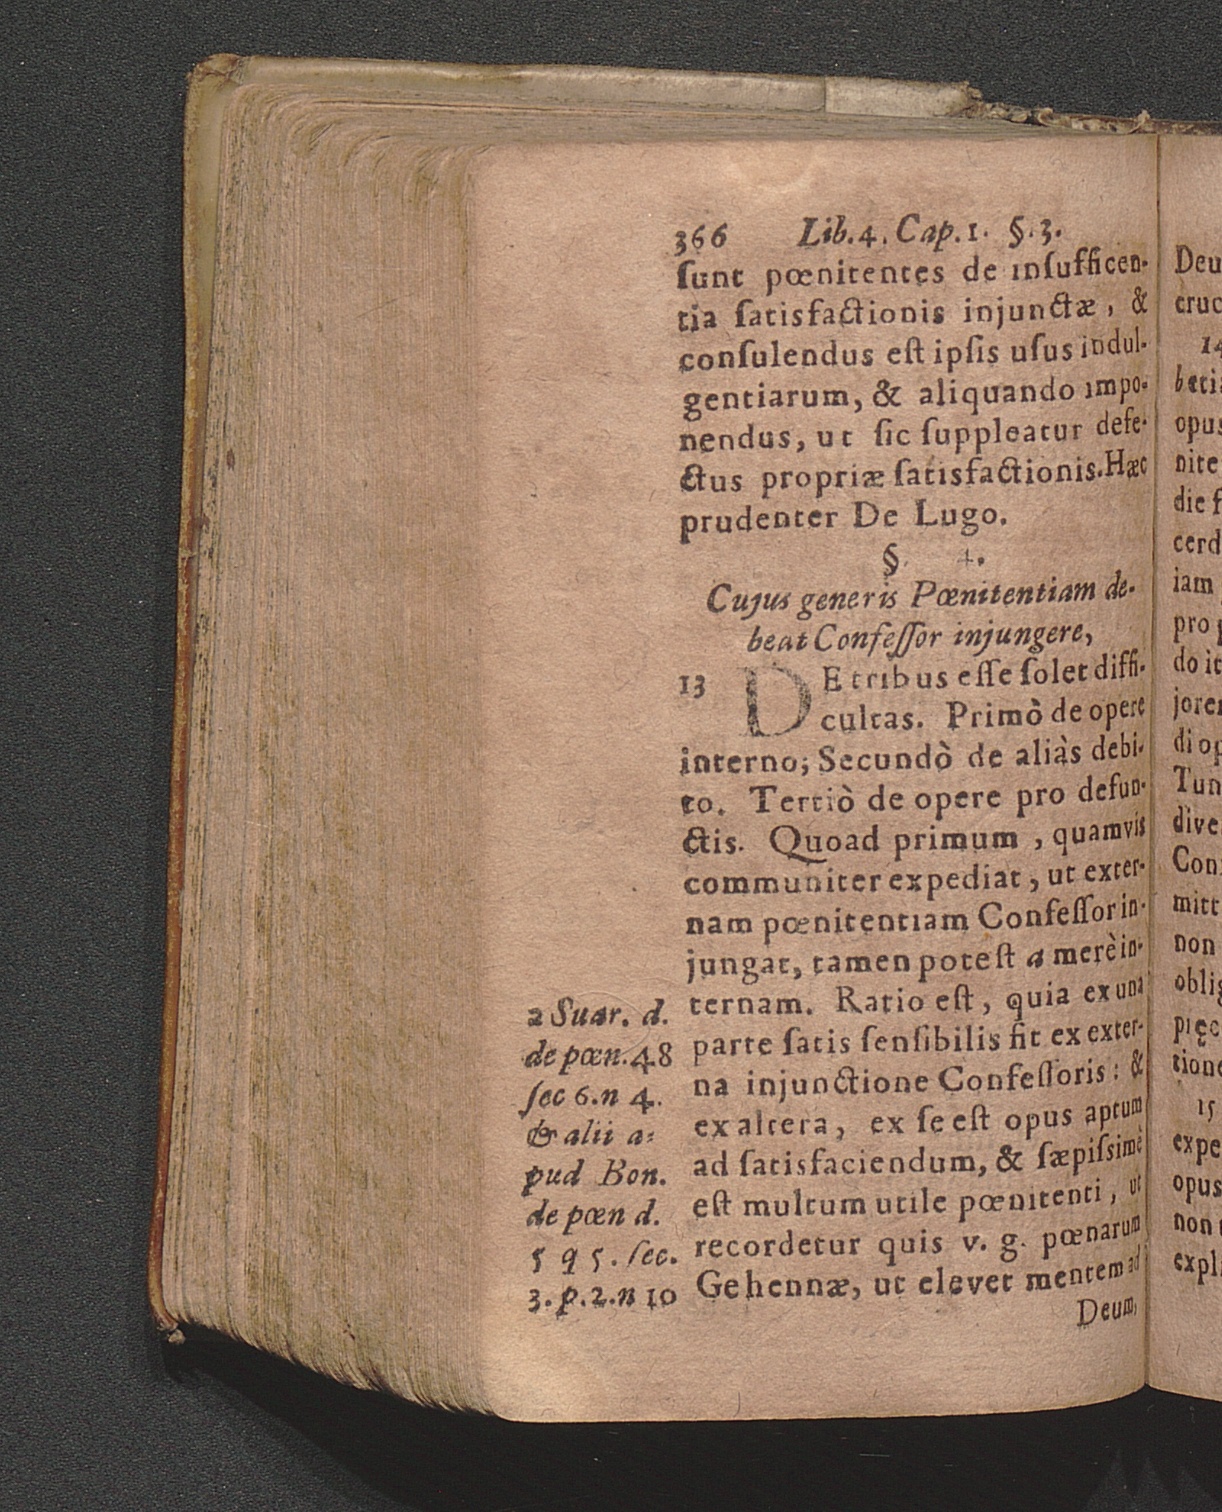 366 Lib. 4. Cap. 1. §. 3.
ſunt pœnitentes de inſufficen-
tia ſatisfactionis injunctæ, &
conſulendus eſt ipſis uſus indul-
gentiarum, & aliquando impo-
nendus, ut ſic ſuppleatur defe-
ctus propriæ ſatisfactionis. Hæc
prudenter De Lugo.
§ 4.
Cujus generis Pœnitentiam de-
beat Confeſſor injungere,
13 DE tribus eſſe ſolet diffi-
cultas. Primò de opere
interno; Secundò de aliàs debi-
to. Tertiò de opere pro defun-
ctis. Quoad primum, quamvis
communiter expediat, ut exter-
nam pœnitentiam Confeſſor in-
jungat, tamen poteſt a merè in-
ternam. Ratio eſt, quia ex una
parte ſatis ſenſibilis fit ex exter-
na injunctione Confeſſoris: &
ex altera, ex ſe eſt opus aptum
ad ſatisfaciendum, & ſæpiſsimè
eſt multum utile pœnitenti, ut
recordetur quis v. g. pœnarum
Gehennæ, ut elevet mentem ad
Deum,
a Suar. d.
de pœn. 48
ſec 6. n 4.
& alii a-
pud Bon.
de pœn d.
5 q 5. ſec.
3. p. 2. n 10
Deu
cruc
14
betia
opus
nite
die f
cerd
iam
pro p
do it
jorem
di op
Tun
dive
Conf
mitt
non
oblig
pręc
tione
15
expe
opus
non
expli